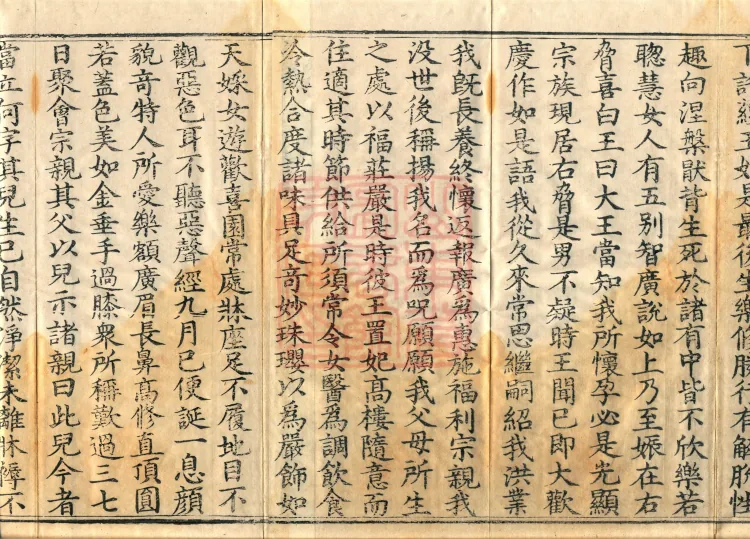 妃是最後生樂修勝行有解脫性
趣向涅槃猒背生死於諸有中皆不欣樂若
聦慧女人有五別智廣說如上乃至娠在右
脅喜白王曰大王當知我所懷孕必是光顯
宗族現居右脅是男不疑時王聞已即大歡
慶作如是語我從久來常思繼嗣紹我洪業
我旣長養終懷返報廣爲惠施福利宗親我
没世後稱揚我名而爲呪願願我父母所生
之處以福莊嚴是時彼王置妃髙樓隨意而
住適其時節供給所須常令女醫爲調飲食
冷熱合度諸味具足奇妙珠瓔以爲嚴飾如
天婇女遊歡喜園常處牀座足不履地目不
觀惡色耳不聽惡聲經九月已便誕一息顏
貌奇特人所愛樂額廣眉長鼻髙修直頂圓
若蓋色美如金垂手過膝衆所稱歎過三七
日聚會宗親其父以兒示諸親曰此兒今者
當立何字其兒生已自然淨潔未離牀褥不